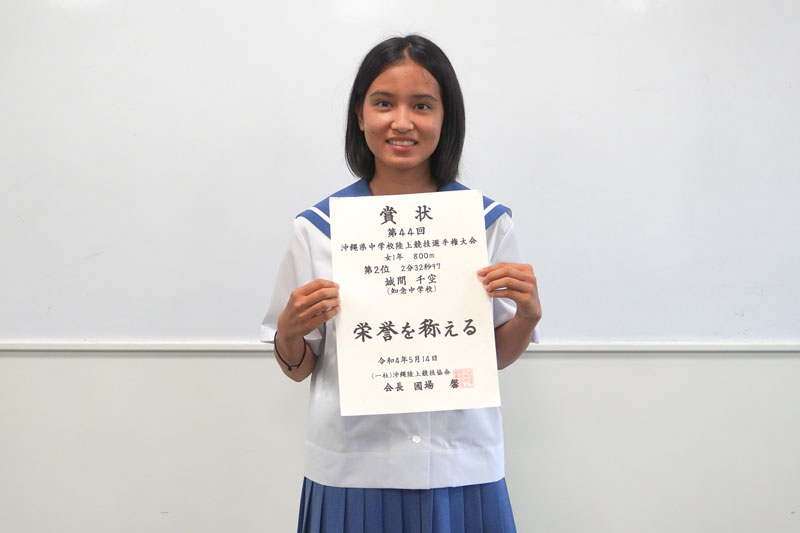 賞状
第44回
沖縄県中学校陸上競技選手権大会
女1年 800m
第2位 2分32秒97
城間 千空
(知念中学校)
栄誉を称える
令和4年5月14日
(一社)沖縄陸上競技協会
会長 國場 馨